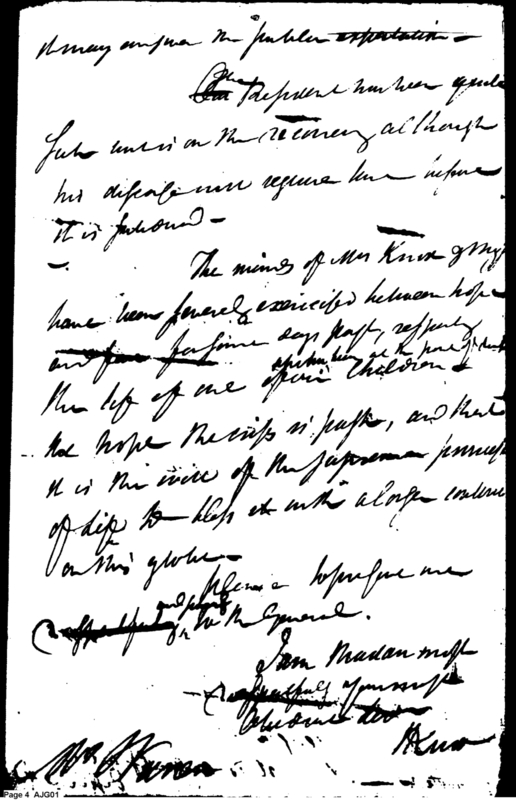 it may answer the public expectation —
The President has been quite
sick but is on the recovery although
his disease will require time before
it is subdued —
The minds of Mrs Knox & my
have been severely exercised between hope
and fear for some days past, respecting
the life of one of our Children
at the point of death
We hope the crisis is past, and that
it is the will of the supreme principle
of life to bless it with a longer continu
on this globe —
me
to the General.
I am Madam most
respectfully Your most
Obedient
HKnox
Page 4 AJG01